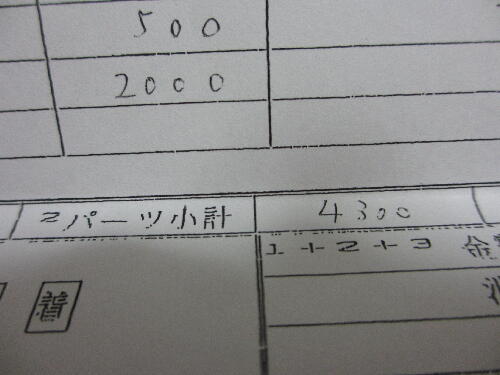 500
2000
2パーツ小計 4300
1+2+3 金